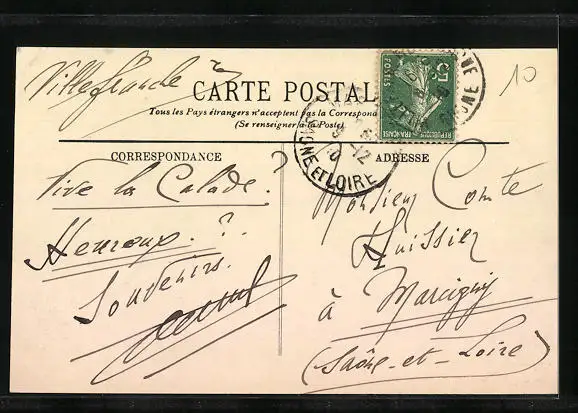 Villefranche
CARTE POSTALE
Tous les Pays étrangers n'acceptent pas la Correspond
(Se renseigner à la Poste)
CORRESPONDANCE
ADRESSE
Vive la Calade.?
Heureux.?.
Souvenirs.
Monsieur Comte
Huissier
à Marcigny
(Saône-et-Loire)
10
5c
POSTES
REPUBLIQUE FRANÇAISE
ET LOIRE